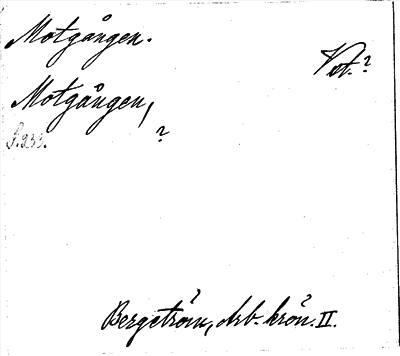 Motgången.
Vst.?
Motgången,
?
S. 233.
Bergström, Arb. krön. II.